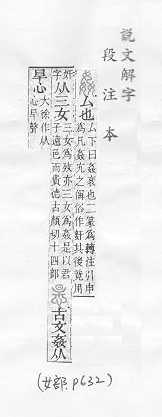 說文解字
段注本
厶也
厶下曰姦衺也二篆為轉注引申
為凡姦宄之偁俗作奸其後竟用
奸
字
从三女
三女為亦三女為姦是以君
子遠色而貴德古顏切十四部
古文姦从
旱心
大徐作从
心旱聲
(女部 P632)